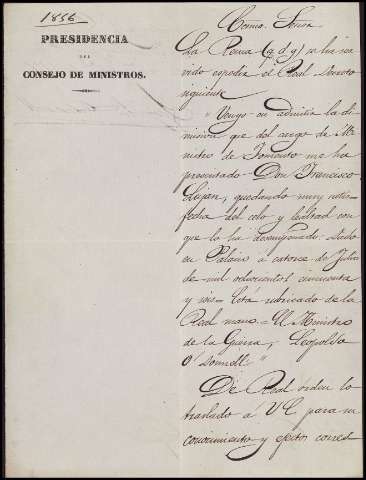 1856
PRESIDENCIA
DEL
CONSEJO DE MINISTROS.
Excmo. Señor
La Reina (q. d. g.) se ha ser
vido expedir el Real decreto
siguiente
"Vengo en admitir la di-
mision que del cargo de Mi
nistro de Fomento me ha
presentado Don Francisco
Lujan, quedando muy satis-
fecha del celo y lealtad con
que lo ha desempeñado. Dado
en Palacio á catorce de Julio
de mil ochocientos cincuenta
y seis = Está rubricado de la
Real mano. = El Ministro
de la Guerra, Leopoldo
O'Donnell."
De Real orden lo
traslado á V.E. para su
conocimiento y efectos corres